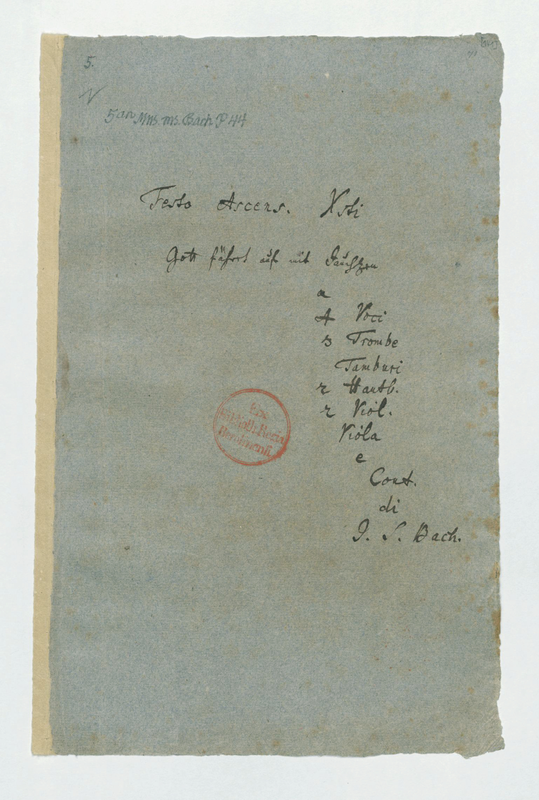 5.
5 an Mus. ms. Bach P 44
Festo Ascens. Xsti
Gott fähret auf mit Jauchzen
a
4 Voci
3 Trombe
Tamburi
2 Hautb.
2 Viol.
Viola
e
Cont.
di
J. S. Bach.